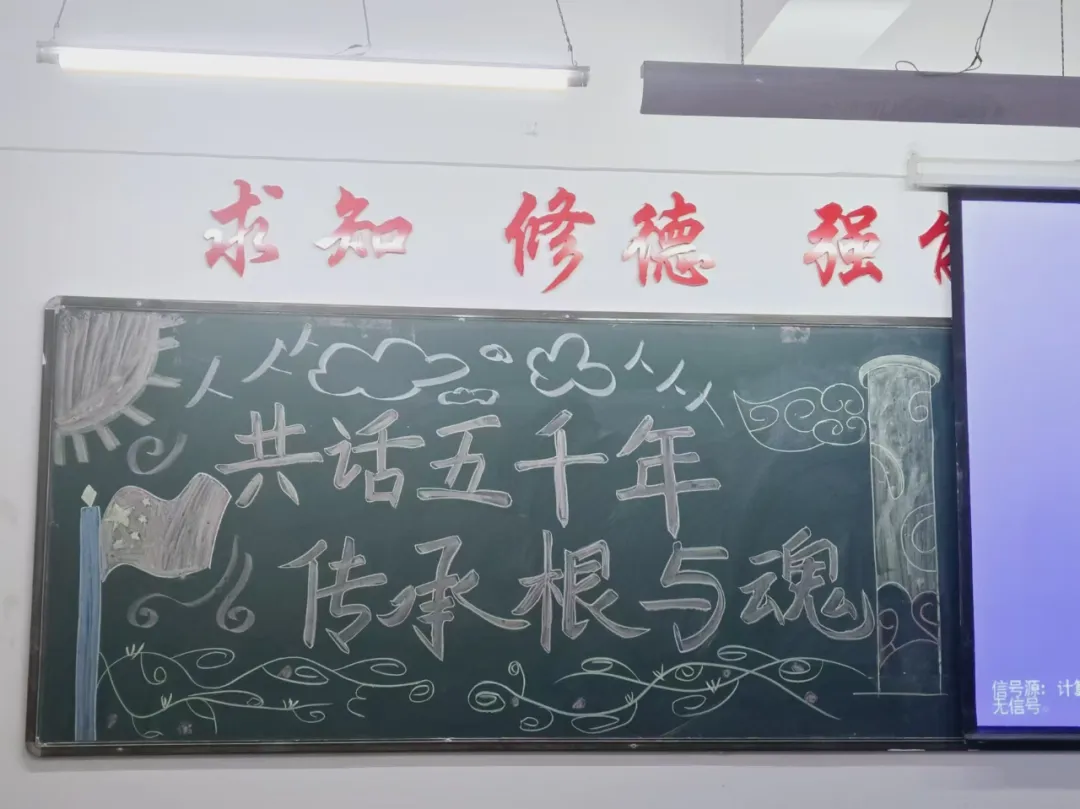 求知 修德 强能
共话五千年
传承根与魂
信号源: 计算
无信号